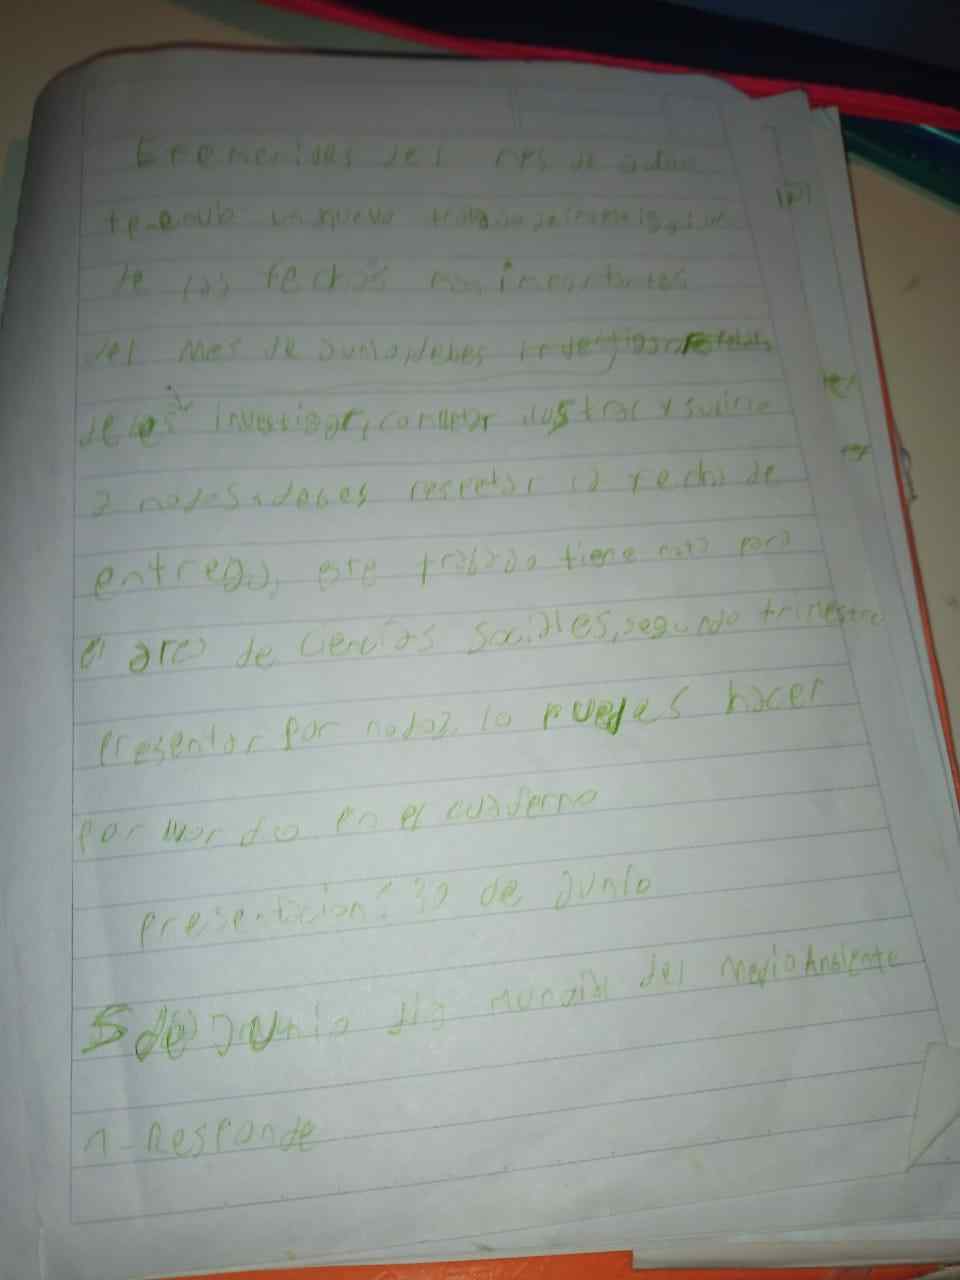 Efemerides del mes de Junio
te envio un nuevo trabajo
de las fechas mas importantes
del mes de Junio, debes
debes investigar, ilustrar y subirlo
a nodos, debes respetar la fecha de
entrega, este trabajo tiene nota para
el area de ciencias sociales, segundo trimestre
Presentar por lo puedes hacer
por word o en el cuaderno
presentacion: 30 de Junio
5 de Junio dia mundial del Medio Ambiente
1- Responde